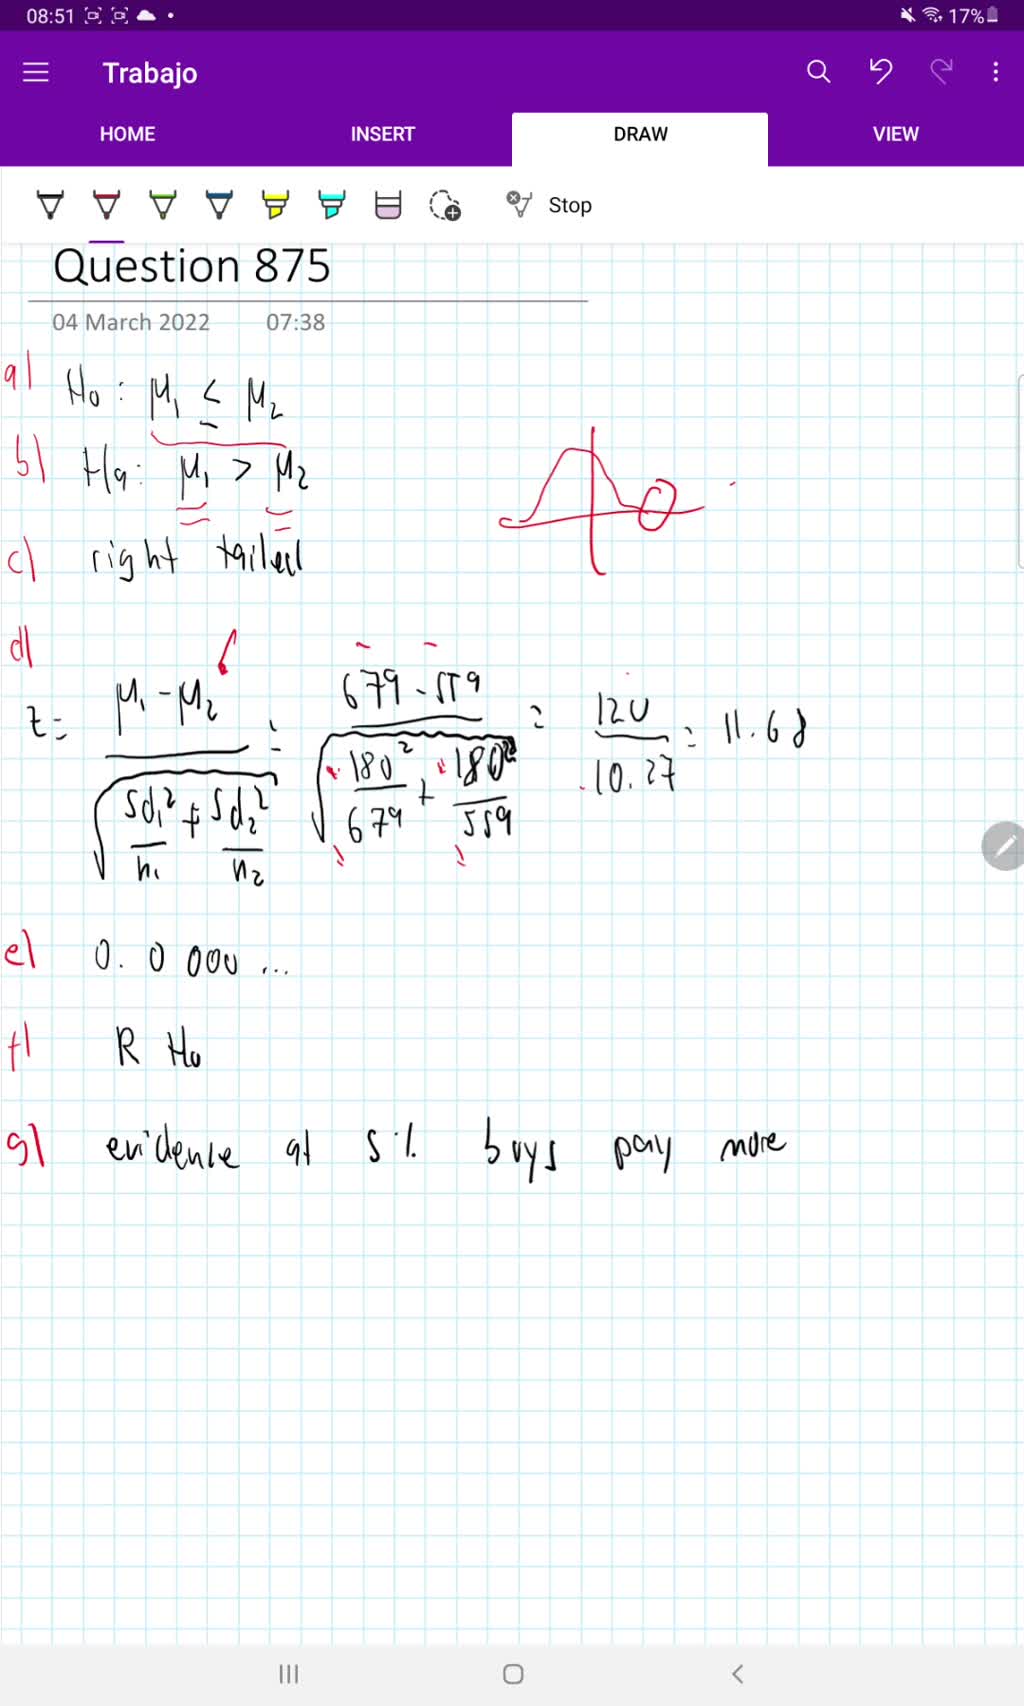 08:51
17%
Trabajo
HOME INSERT DRAW VIEW
Stop
Question 875
04 March 2022 07:38
a) H₀: μ₁ ≤ μ₂
b) Ha: μ₁ > μ₂
c) right tailed
d)
z = (μ₁ - μ₂) / √(Sd₁²/n₁ + Sd₂²/n₂) = (679 - 559) / √(180²/679 + 180²/559) = 120/10.27 = 11.68
e) 0.0000...
f) R H₀
g) evidence at 5% boys pay more